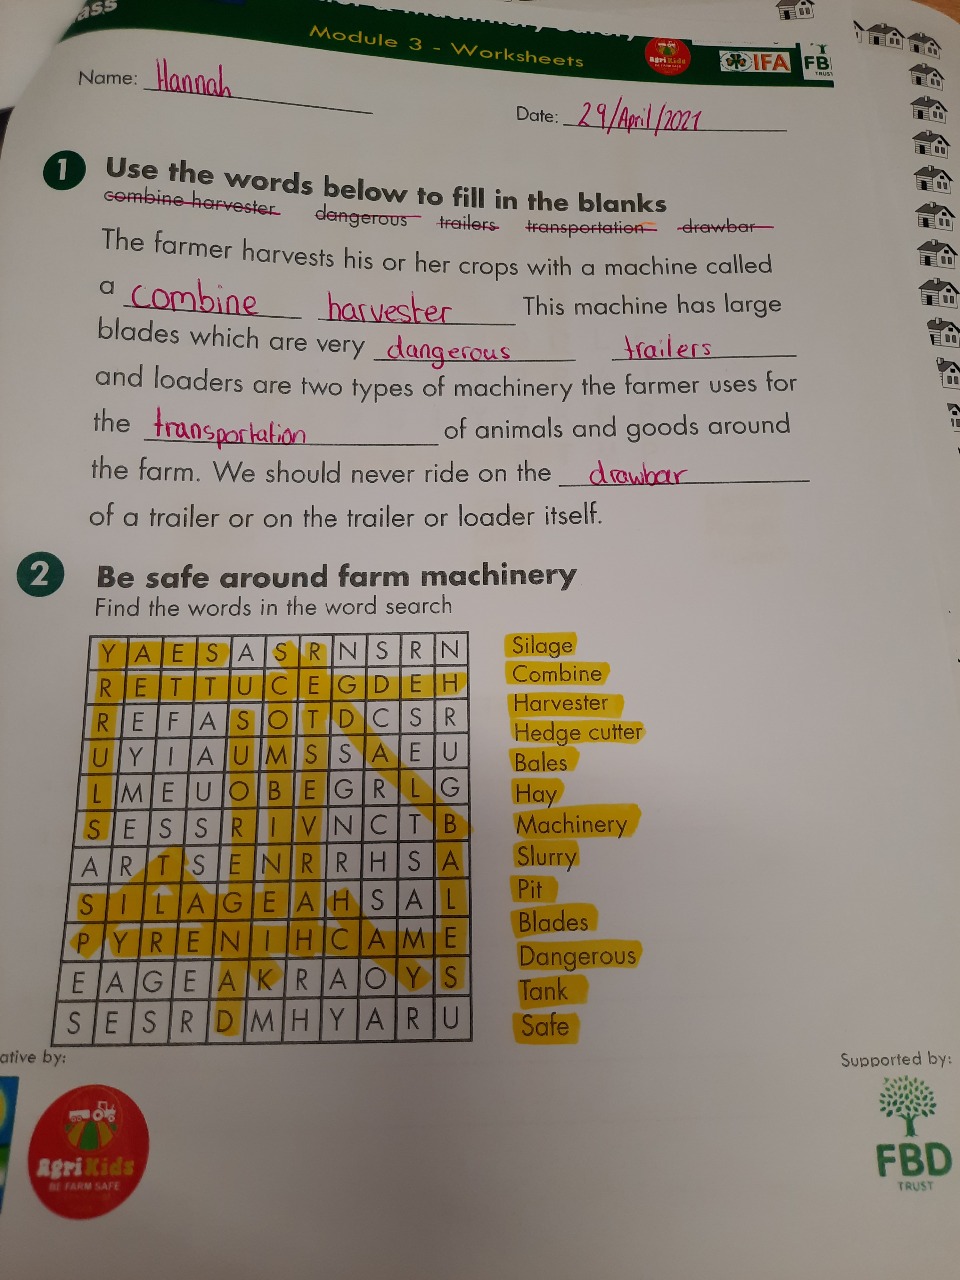 ass
Module 3 - Worksheets
AgriKids
BE FARM SAFE
IFA
FB
TRUST
Name: Hannah
Date: 29/April/2021
1 Use the words below to fill in the blanks
combine harvester dangerous trailers transportation drawbar
The farmer harvests his or her crops with a machine called
a combine harvester This machine has large
blades which are very dangerous trailers
and loaders are two types of machinery the farmer uses for
the transportation of animals and goods around
the farm. We should never ride on the drawbar
of a trailer or on the trailer or loader itself.
2 Be safe around farm machinery
Find the words in the word search
Y A E S A S R N S R N
R E T T U C E G D E H
R E F A S O T D C S R
U Y I A U M S S A E U
L M E U O B E G R L G
S E S S R I V N C T B
A R T S E N R R H S A
S I L A G E A H S A L
P Y R E N I H C A M E
E A G E A K R A O Y S
S E S R D M H Y A R U
Silage
Combine
Harvester
Hedge cutter
Bales
Hay
Machinery
Slurry
Pit
Blades
Dangerous
Tank
Safe
ative by:
Supported by:
AgriKids
BE FARM SAFE
FBD
TRUST